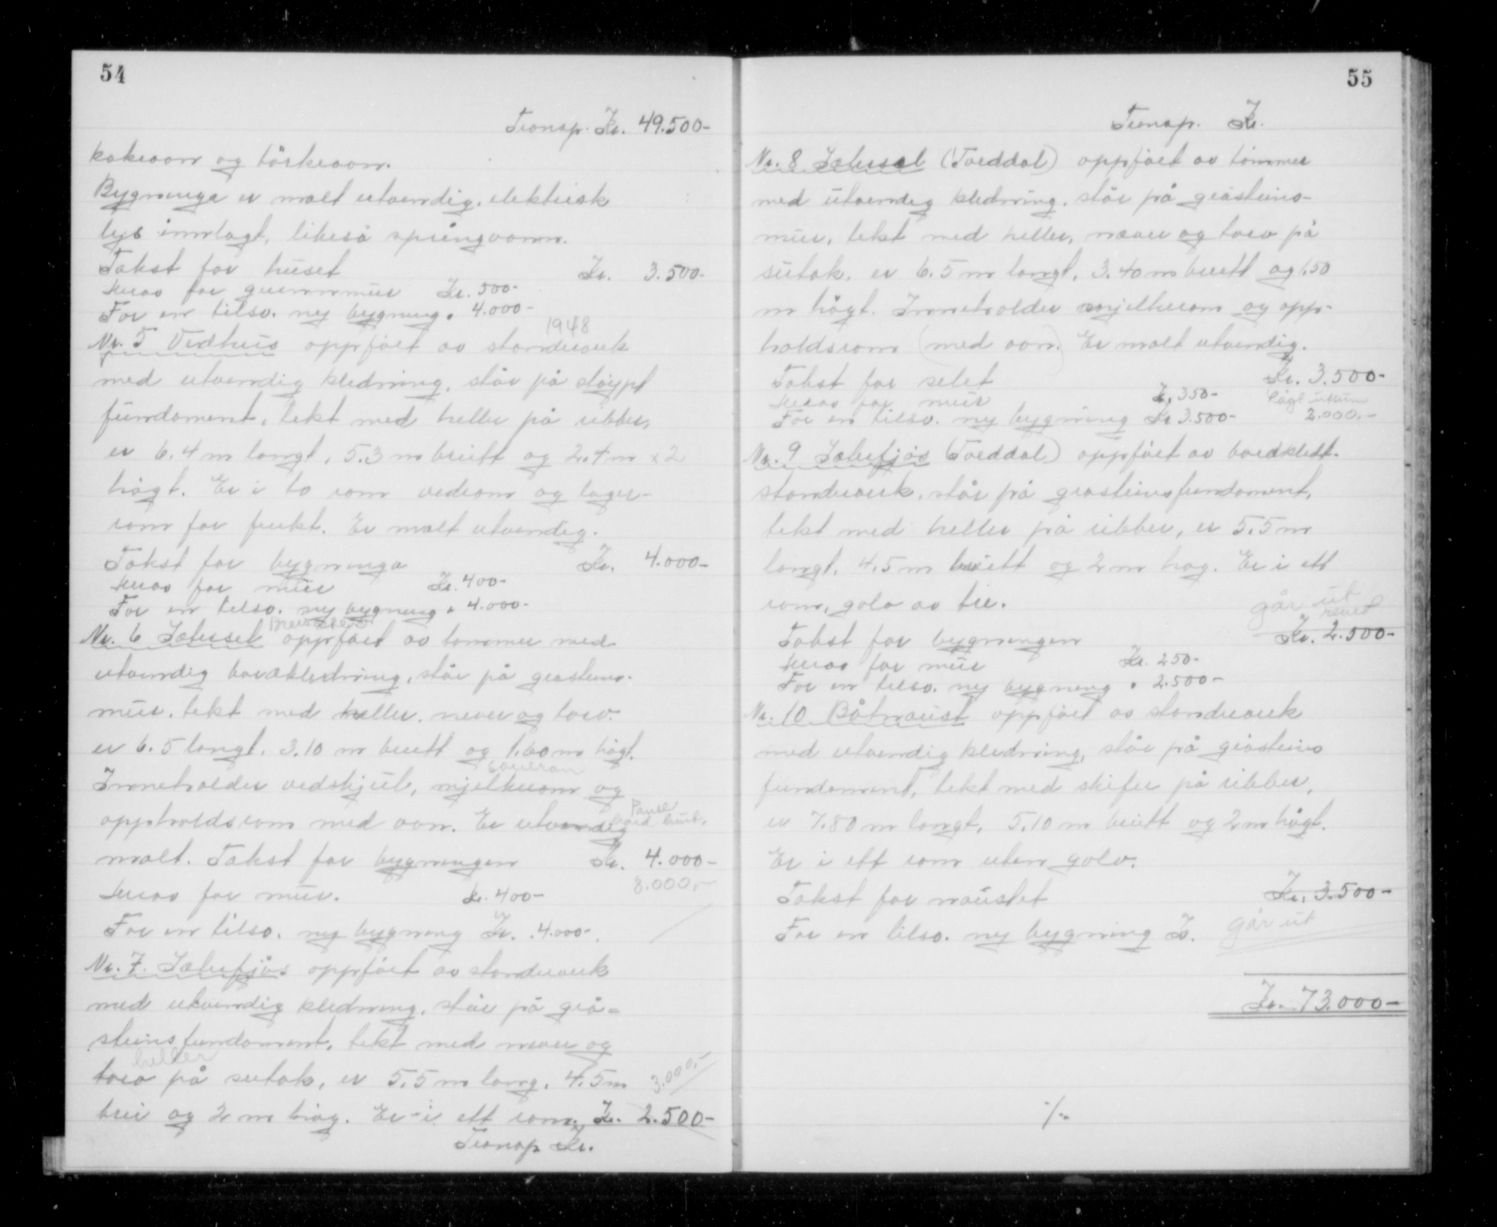 54
Transp. Kr. 49.500-
kokeovn og tørkeovn.
Bygninga er malt utvendig, elektrisk
lys innlagt, likeså springvann.
Takst for huset Kr. 3.500-
herav for grunnmur Kr. 500-
For en tilsv. ny bygning " 4.000-
1948
Nr. 5 Vedhus oppført av standverk
med utvendig kledning, står på støypt
fundament, tekt med heller på ribber,
er 6.4 m langt, 5.3 m breitt og 2.4 m x 2
høgt. Er i to rom vedrom og lager-
rom for frukt. Er malt utvendig.
Takst for bygninga Kr. 4.000-
herav for mur Kr. 400-
For en tilsv. ny bygning " 4.000-
Nr. 6 Selhusel oppført av tømmer med
utvendig bordkledning, står på gråsteins-
mur, tekt med heller, never og torv.
er 6.5 langt, 3.10 m breitt og 1.60 m høgt.
Inneholder vedskjul, mjelkerom og
oppholdsrom med ovn. Er utvendig
Panel
malt. Takst for bygningen Kr. 4.000-
8.000,-
herav for mur. kr. 400-
For en tilsv. ny bygning Kr. 4.000-
Nr. 7. Selefjøs oppført av standverk
med utvendig kledning, står på grå-
steinsfundament, tekt med never og
heller
torv på sutak, er 5.5 m lang, 4.5 m
3.000,-
brei og 2 m høg. Er i ett rom, Kr. 2.500-
Transp Kr.
55
Transp. Kr.
Nr. 8 (Torddal) oppført av tømmer
med utvendig kledning, står på gråsteins-
mur, tekt med heller, never og torv på
sutak, er 6.5 m langt, 3.40 m breitt og 1.50
m høgt. Inneholder mjelkerom og opp-
holdsrom (med ovn.) Er malt utvendig.
Takst for selet Kr. 3.500-
herav for mur Kr. 350-
For en tilsv. ny bygning Kr 3.500- 2.000,-
Nr. 9 Selefjøs (Torddal) oppført av bordkledt
standverk, står på gråsteinsfundament,
tekt med heller på ribber, er 5.5 m
langt, 4.5 m breitt og 2 m høg. Er i ett
rom, golv av tre.
går ut
revet
Takst for bygningen Kr. 2.500-
herav for mur Kr. 250-
For en tilsv. ny bygning " 2.500-
Nr. 10 Båtnaust oppført av standverk
med utvendig kledning, står på gråsteins
fundament, tekt med skifer på ribber,
er 7.80 m langt, 5.10 m breitt og 2 m høgt.
Er i ett rom uten golv.
Takst for naustet Kr. 3.500-
For en tilsv. ny bygning Kr. går ut
Kr. 73.000-